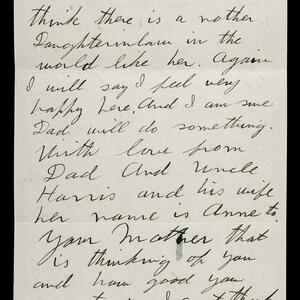 think there is a nother
Daughterinlaw in the
world like her. Again
I will say I feel very
happy here. And I am sure
Dad will do something.
With love from
Dad And Uncle
Harris and his wife
her name is Anne to.
Your Mother that
is thinking of you
and how good you